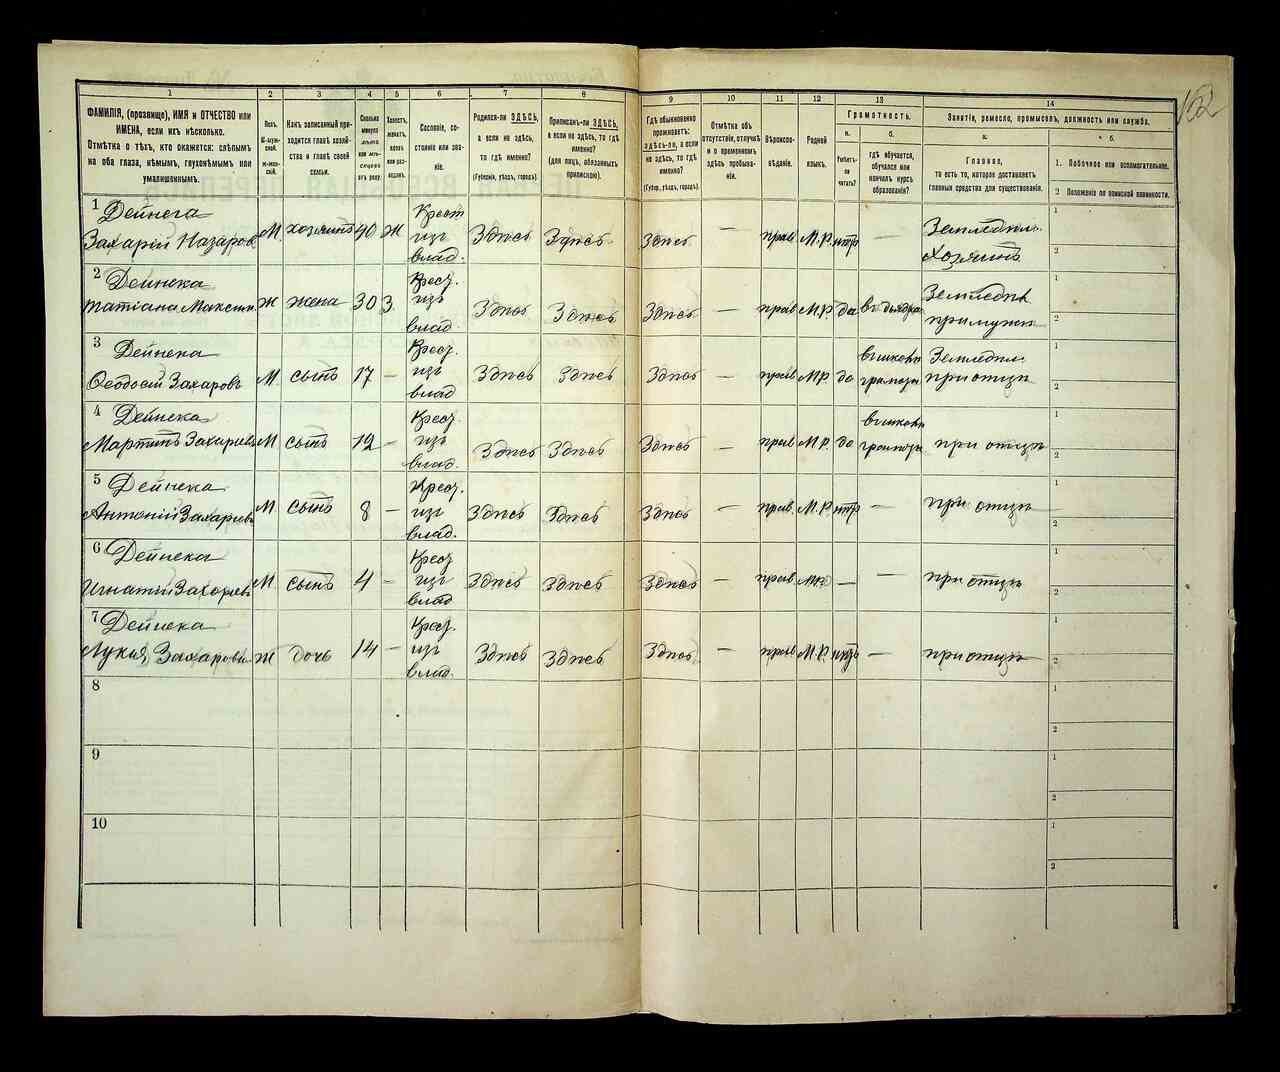 152
1 2 3 4 5 6 7 8 9 10 11 12 13 14
ФАМИЛІЯ, (прозвище), ИМЯ и ОТЧЕСТВО или
ИМЕНА, если ихъ нѣсколько.
Отмѣтка о тѣхъ, кто окажется: слѣпымъ
на оба глаза, нѣмымъ, глухонѣмымъ или
умалишеннымъ.
Полъ.
М-муж-
ской.
Ж-жен-
скій.
Какъ записанный при-
ходится главѣ хозяй-
ства и главѣ своей
семьи.
Сколько
минуло
лѣтъ
или мѣ-
сяцевъ
отъ роду.
Холостъ,
женатъ,
вдовъ
или раз-
веденъ.
Сословіе, со-
стояніе или зва-
ніе.
Родился-ли ЗДѢСЬ,
а если не здѣсь,
то гдѣ именно?
(Губернія, уѣздъ, городъ).
Приписанъ-ли ЗДѢСЬ,
а если не здѣсь, то гдѣ
именно?
(для лицъ, обязанныхъ
припискою).
Гдѣ обыкновенно
проживаетъ:
здѣсь-ли, а если
не здѣсь, то гдѣ
именно?
(Губер., уѣздъ, городъ).
Отмѣтка объ
отсутствіи, отлучкѣ
и о временномъ
здѣсь пребыва-
ніи.
Вѣроиспо-
вѣданіе.
Родной
языкъ.
Грамотность.
а.
Умѣетъ-
ли
читать?
б.
гдѣ обучается,
обучался или
кончилъ курсъ
образованія?
Занятіе, ремесло, промыселъ, должность или служба.
а.
Главная,
то есть то, которое доставляетъ
главныя средства для существованія.
б.
1. Побочное или вспомогательное.
2 Положеніе по воинской повинности.
1 Дейнега
Захарій Назаров. М. хозяинъ 40 ж Крест изъ влад. Здѣсь Здѣсь Здѣсь — прав. М.Р. нѣтъ — Земледѣл. Хозяинъ 1 2
2 Дейнека
Татіана Максим. Ж жена 30 з. Крест. изъ влад. Здѣсь Здѣсь Здѣсь — прав М.Р. да Земледѣл при мужѣ 1 2
3 Дейнека
Ѳеодосій Захаровъ М. сынъ 17 — Крест. изъ влад Здѣсь Здѣсь Здѣсь — прав. М.Р. да в школѣ грамоты Земледѣл. при отцѣ 1 2
4 Дейнека
Мартинъ Захаріевъ М сынъ 12 — Крест. изъ влад. Здѣсь Здѣсь Здѣсь — прав М.Р. да в школѣ грамоты при отцѣ 1 2
5 Дейнека
Антоній Захаріевъ М. сынъ 8 — Крест. изъ влад. Здѣсь Здѣсь Здѣсь — прав. М.Р. нѣтъ — при отцѣ 1 2
6 Дейнека
Игнатій Захаріевъ М сынъ 4 — Крест изъ влад Здѣсь Здѣсь Здѣсь — прав М.Р. — — при отцѣ 1 2
7 Дейнека
Лукія, Захарови. Ж дочь 14 — Крест. изъ влад. Здѣсь Здѣсь Здѣсь — прав М.Р. нѣтъ — при отцѣ 1 2
8 1 2
9 1 2
10 1 2